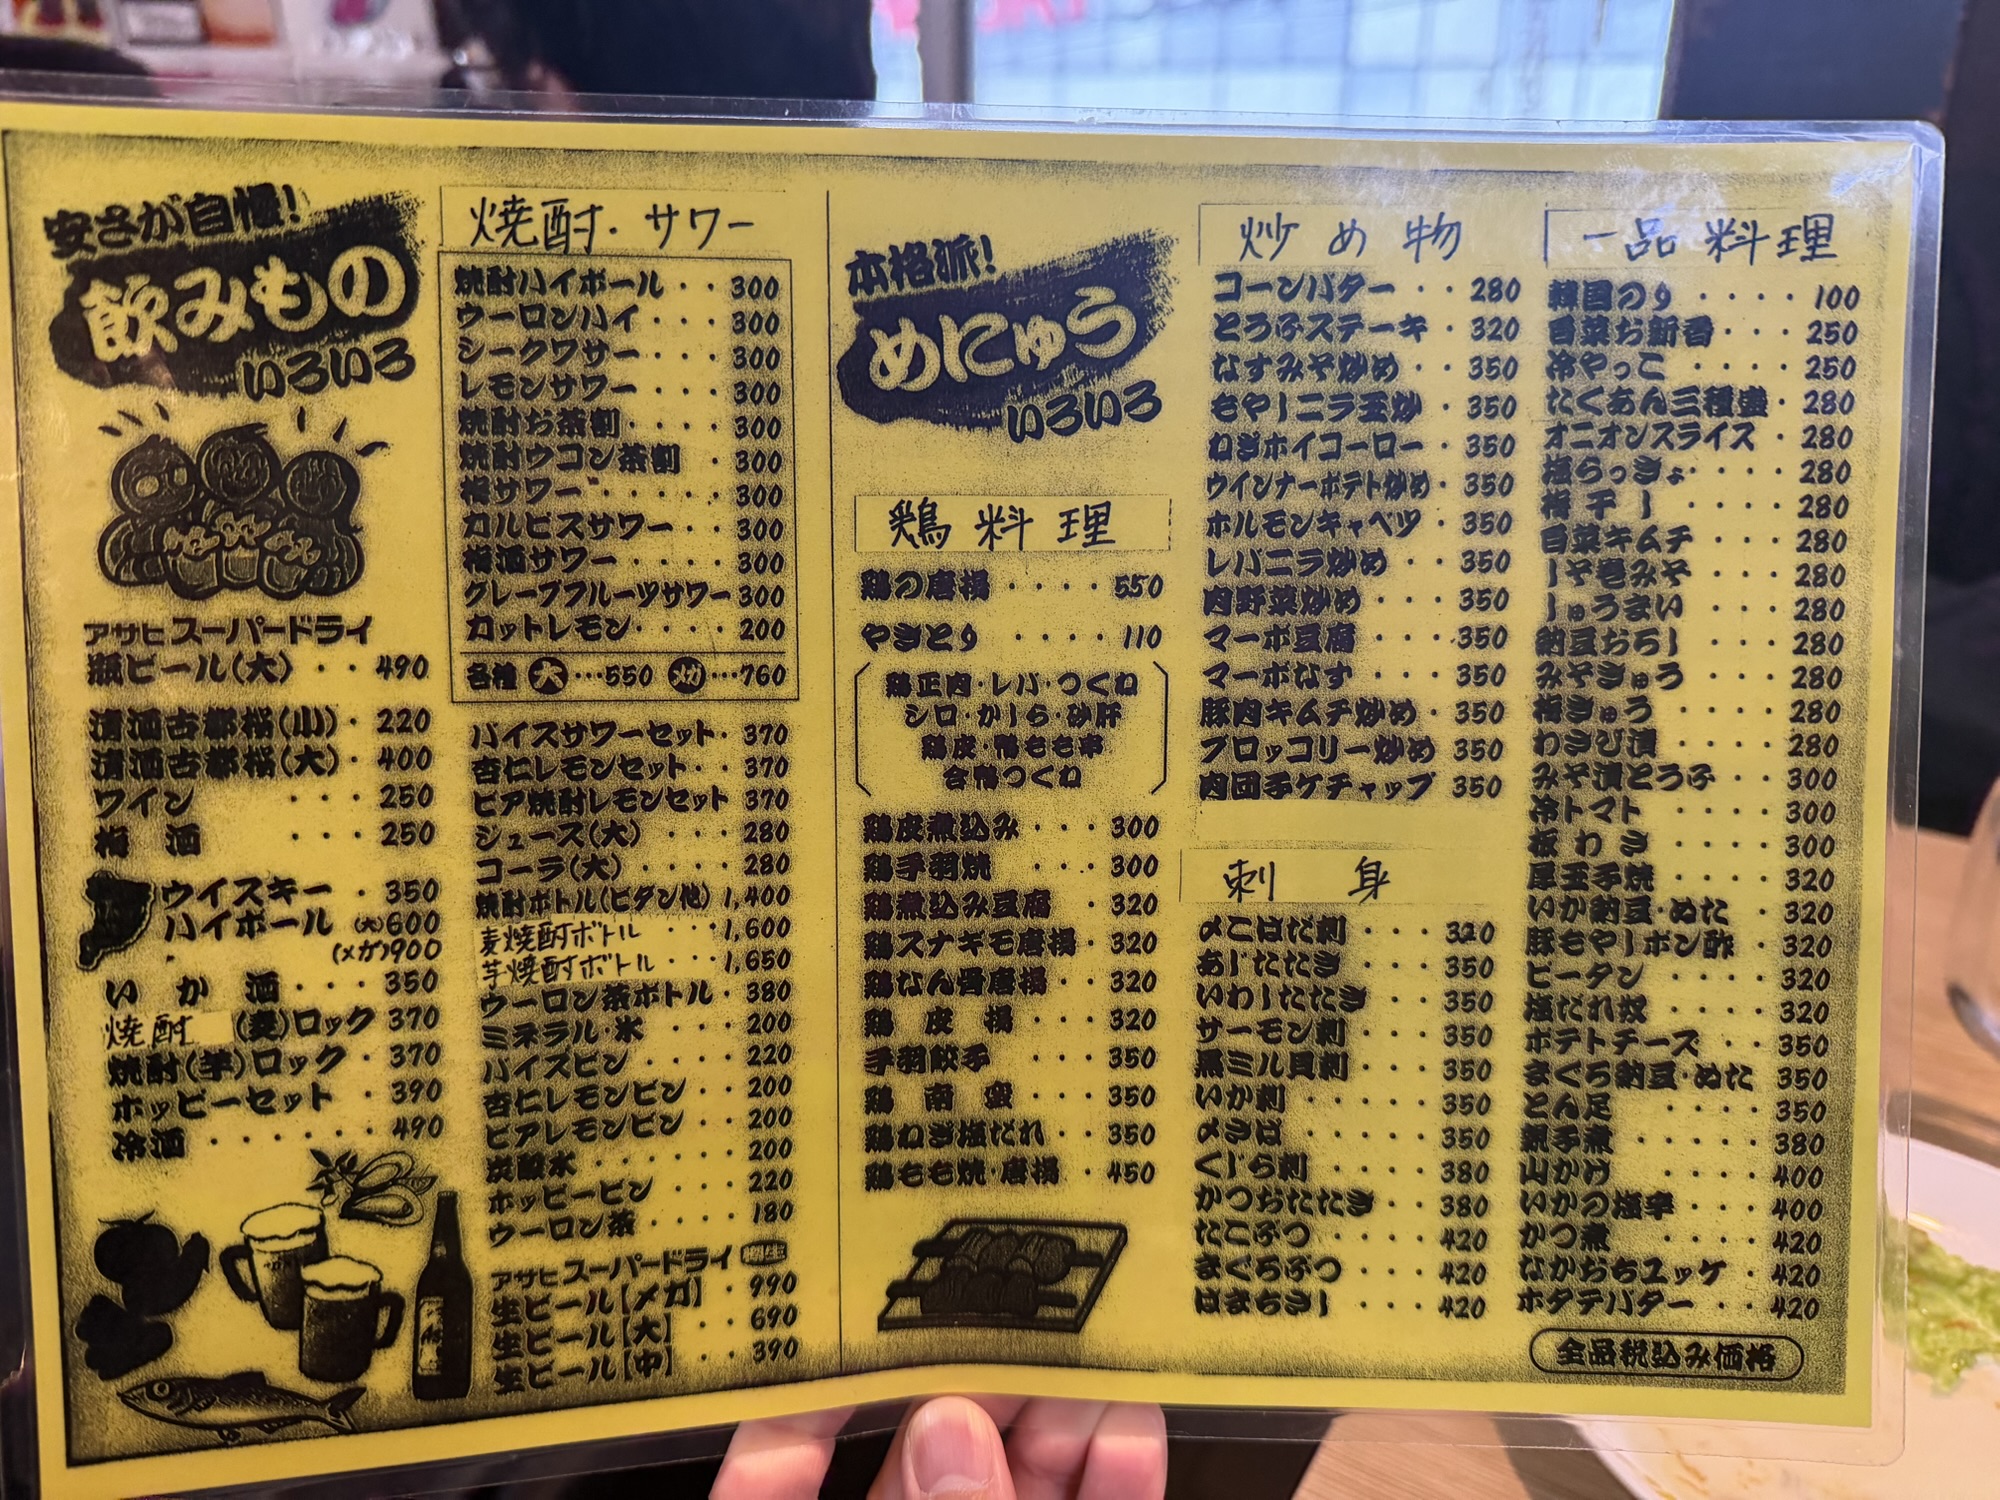 安さが自慢!
飲みもの
いろいろ
アサヒスーパードライ
瓶ビール(大)・・490
清酒古都桜(小)・220
清酒古都桜(大)・400
ワイン ・・・250
梅酒 ・・・250
ウイスキー・350
ハイボール(大)600
(メガ)900
いか酒・・・350
焼酎(麦)ロック 370
焼酎(芋)ロック・370
ホッピーセット・390
冷酒・・・・・・490
焼酎・サワー
焼酎ハイボール・・300
ウーロンハイ・・・300
シークワサー・・・300
レモンサワー・・・300
焼酎お茶割・・・・300
焼酎ウコン茶割・300
梅サワー・・・・・300
カルピスサワー・・300
梅酒サワー・・・・300
グレープフルーツサワー300
カットレモン・・・・200
各種 大…550 メガ…760
バイスサワーセット・370
杏仁レモンセット・・370
ビア焼酎レモンセット 370
ジュース(大)・・・・280
コーラ(大)・・・・280
焼酎ボトル(ビタン他)1,400
麦焼酎ボトル・・・1,600
芋焼酎ボトル・・・1,650
ウーロン茶ボトル・380
ミネラル・氷・・・200
バイスビン・・・・220
杏仁レモンビン・・200
ビアレモンビン・・200
炭酸水・・・・・・200
ホッピービン・・・220
ウーロン茶・・・・180
アサヒスーパードライ 樽生
生ビール【メガ】・990
生ビール【大】・・690
生ビール【中】・・390
本格派!
めにゅう
いろいろ
鶏料理
鶏の唐揚・・・・550
やきとり・・・・110
鶏正肉・レバ・つくね
シロ・かしら・砂肝
鶏皮・鴨もも串
合鴨つくね
鶏皮煮込み・・・300
鶏手羽焼・・・・300
鶏煮込み豆腐・・320
鶏スナギモ唐揚・320
鶏なん骨唐揚・・320
鶏皮揚・・・320
手羽餃子・・・350
鶏南蛮・・・350
鶏ねぎ塩だれ・・350
鶏もも焼・唐揚・450
炒め物
コーンバター・・280
とうふステーキ・320
なすみそ炒め・・350
もやしニラ玉炒・350
ねぎホイコーロー・350
ウインナーポテト炒め・350
ホルモンキャベツ・350
レバニラ炒め・・350
肉野菜炒め・・・350
マーボ豆腐・・・350
マーボなす・・・350
豚肉キムチ炒め・350
ブロッコリー炒め・350
肉団手ケチャップ 350
刺身
〆こはだ刺・・・320
あじたたき・・・350
いわしたたき・・350
サーモン刺・・・350
黒ミル貝刺・・・350
いか刺・・・・・350
〆さば・・・・・350
くじら刺・・・・380
かつおたたき・・380
たこぶつ・・・・420
まぐろぶつ・・・420
はまちさし・・・420
一品料理
韓国のり・・・・100
白菜お新香・・・250
冷やっこ・・・・250
たくあん三種盛・280
オニオンスライス・280
塩らっきょ・・・・280
梅干し・・・・280
白菜キムチ・・・280
しそ巻みそ・・・280
しゅうまい・・・280
納豆おろし・・・280
みそきゅう・・・280
梅きゅう・・・・280
わさび漬・・・・280
みそ漬とうふ・・300
冷トマト・・・・300
板わさ・・・・300
厚玉手焼・・・・320
いか納豆・ぬた・320
豚もやしポン酢・320
ピータン・・・・320
塩だれ奴・・・・320
ポテトチーズ・・350
まぐろ納豆・ぬた 350
とん足・・・・350
親手煮・・・・・380
山かけ・・・・400
いかの塩辛・・・400
かつ煮・・・・420
なかおちユッケ・420
ホタテバター・・420
全品税込み価格